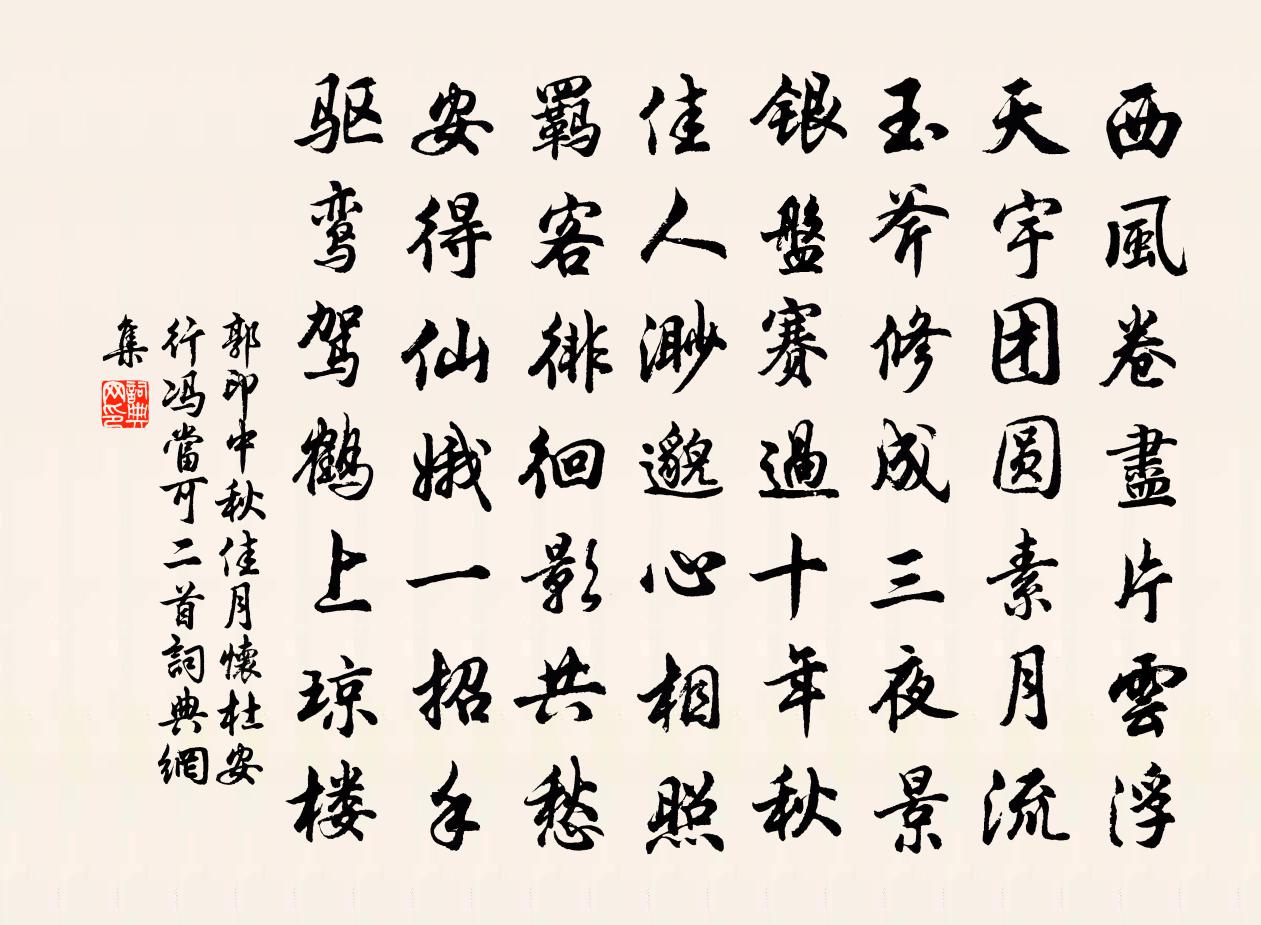 西風卷盡片雲浮
天宇团圆素月流
玉斧修成三夜景
銀盤賽過十年秋
佳人渺邈心相照
羈客徘徊影共愁
安得仙娥一招手
驱鸾驾鹤上琼楼
郭印中秋佳月懷杜安
行冯當可二首詞典網
集
詞典
网印